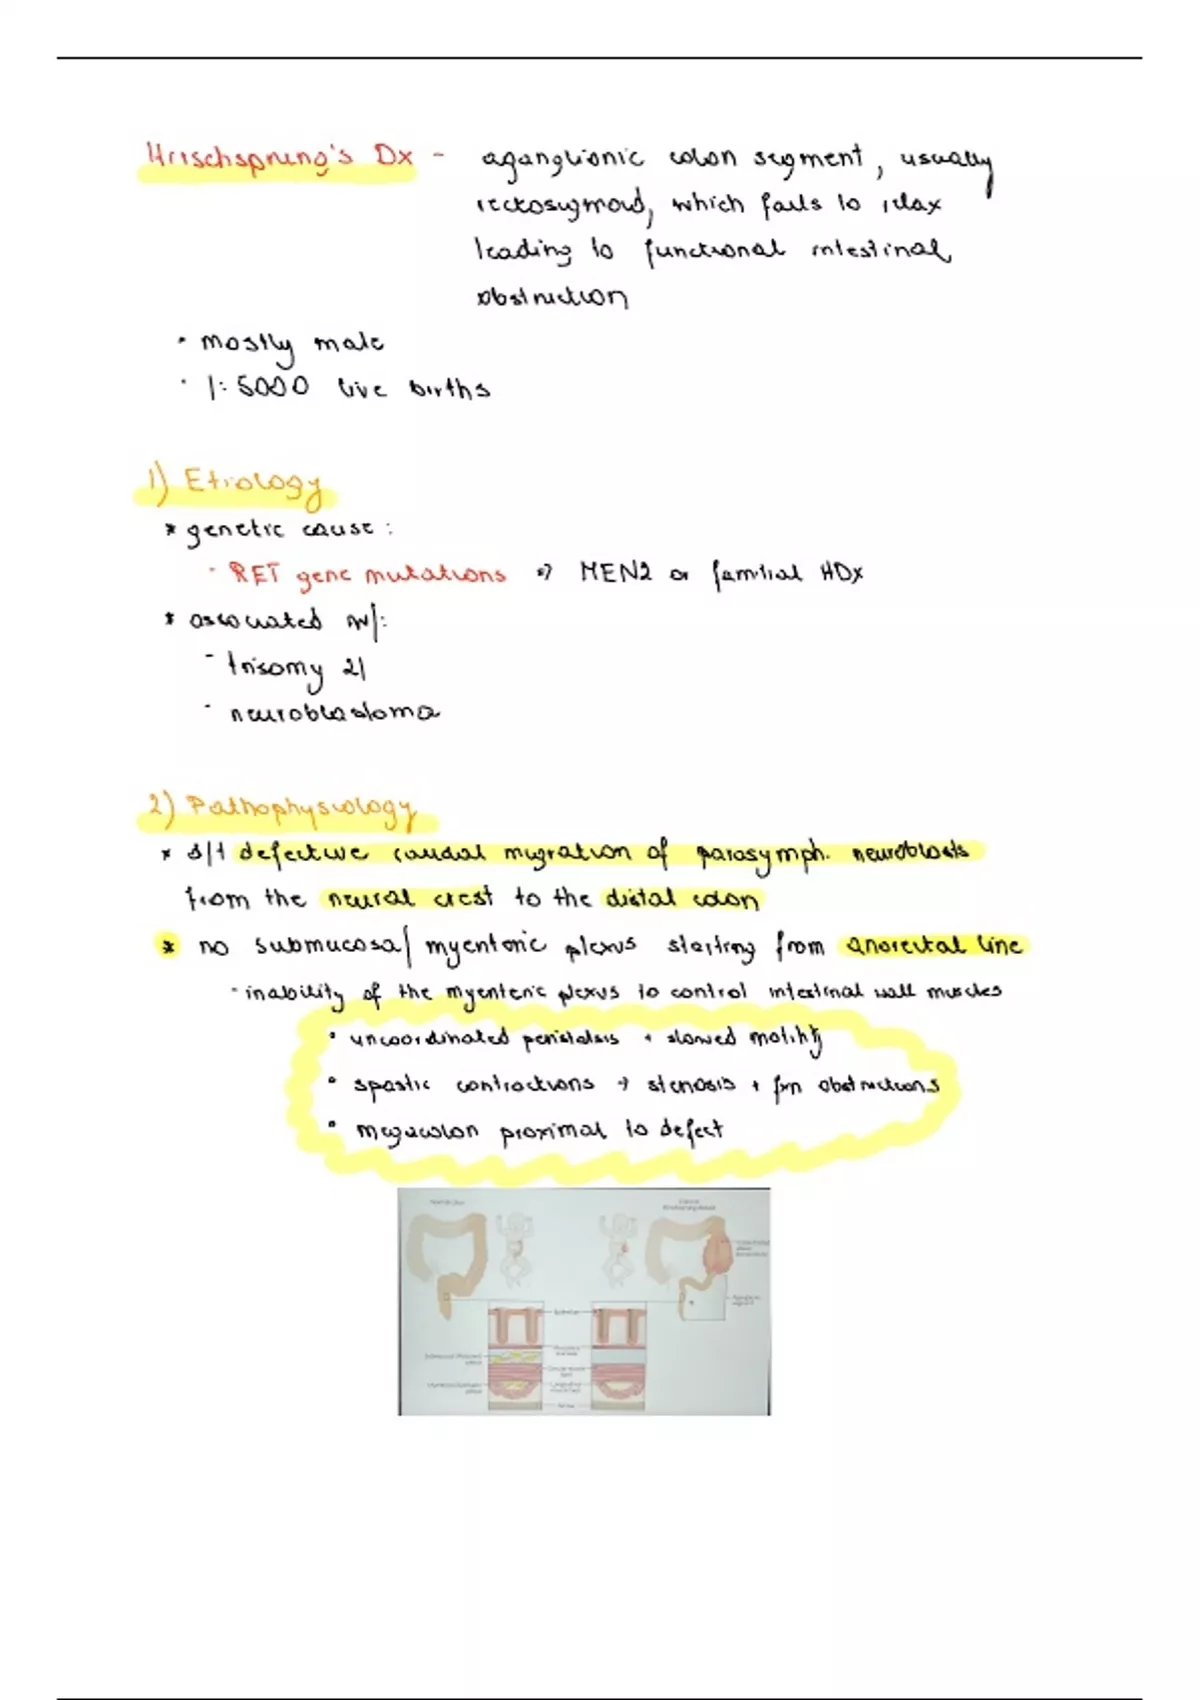 Hirschsprung's Dx - aganglionic colon segment, usually
rectosigmoid, which fails to relax
leading to functional intestinal
obstruction
• mostly male
• 1:5000 live births
1) Etiology
* genetic cause:
- RET gene mutations => MEN2 or familial HDx
* associated w/:
- trisomy 21
- neuroblastoma
2) Pathophysiology
* d/t defective caudal migration of parasymph. neuroblasts
from the neural crest to the distal colon
* no submucosal/ myenteric plexus starting from anorectal line
- inability of the myenteric plexus to control intestinal wall muscles
• uncoordinated peristalsis + slowed motility
• spastic contractions → stenosis + fxn obstructions
• megacolon proximal to defect